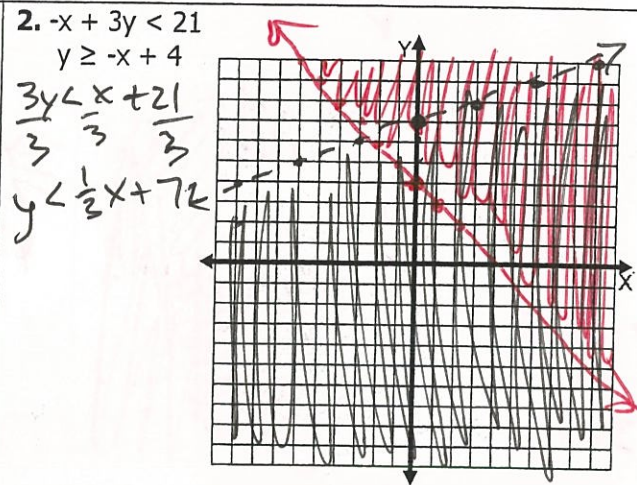 2. -x + 3y < 21
y ≥ -x + 4
3y < x + 21
3 3 3
y < 1/3 x + 7
Y
X